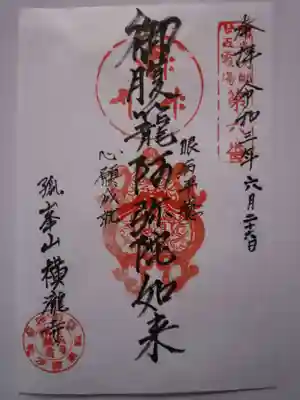 奉拝 令和三年六月二十六日
第六番
眼病平癒
御腹籠阿弥陀如来
心願成就
孤峯山 横瀧寺